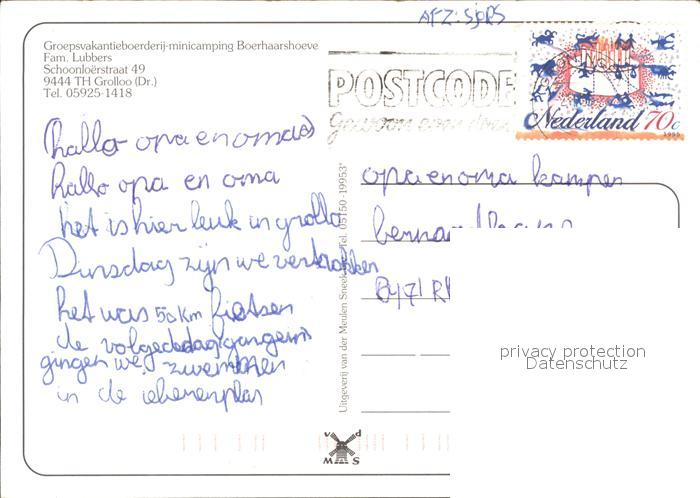 AFZ: SJORS
Groepsvakantieboerderij-minicamping Boerhaarshoeve
Fam. Lubbers
Schoonloërstraat 49
9444 TH Grolloo (Dr.)
Tel. 05925-1418
POSTCODE
gewoon even doen
Nederland 70c
1995
hallo opa en oma
hallo opa en oma
het is hier leuk in grollo
Dinsdag zijn we vertrokken
het was 50 km fietsen
de volgede dag
gingen we zwemmen
in de
opa en oma kampen
Uitgeverij van der Meulen Sneek Tel. 05150-19953*
v d P
W M S
privacy protection
Datenschutz